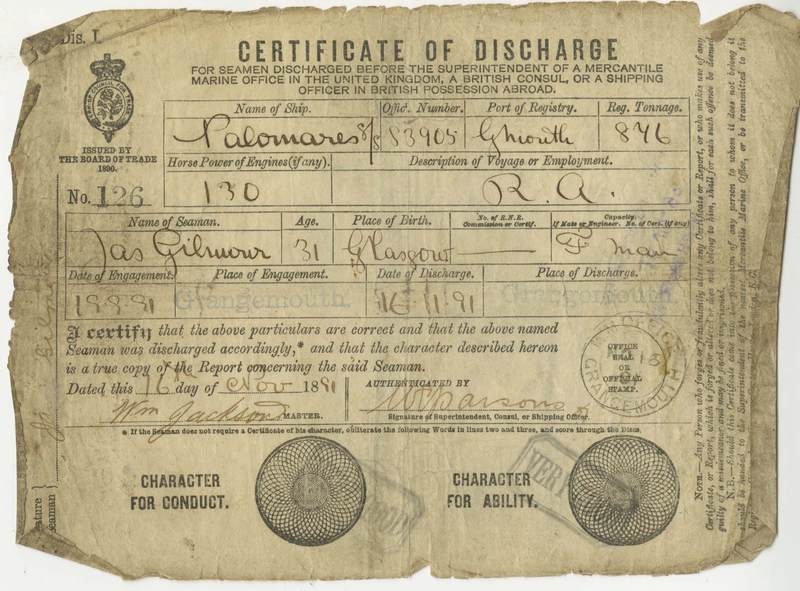 Dis. I.
CERTIFICATE OF DISCHARGE
FOR SEAMEN DISCHARGED BEFORE THE SUPERINTENDENT OF A MERCANTILE
MARINE OFFICE IN THE UNITED KINGDOM, A BRITISH CONSUL, OR A SHIPPING
OFFICER IN BRITISH POSSESSION ABROAD.
ISSUED BY
THE BOARD OF TRADE
1890.
No. 126
Name of Ship. Offici. Number. Port of Registry. Reg. Tonnage.
Palomares S/S 83905 Gmouth 876
Horse Power of Engines (if any). Description of Voyage or Employment.
130 R. A.
Name of Seaman. Age. Place of Birth. No. of R.N.R. Commission or Certif. Capacity. If Mate or Engineer. No. of Cert. (if any)
Jas Gilmour 31 Glasgow F. man
Date of Engagement. Place of Engagement. Date of Discharge. Place of Discharge.
19.8.91 Grangemouth. 16 11 91 Grangemouth.
I certify that the above particulars are correct and that the above named
Seaman was discharged accordingly,* and that the character described hereon
is a true copy of the Report concerning the said Seaman.
Dated this 16th day of Nov 1891 AUTHENTICATED BY
Wm Jackson MASTER.
Signature of Superintendent, Consul, or Shipping Officer.
* If the Seaman does not require a Certificate of his character, obliterate the following Words in lines two and three, and score through the Discs.
OFFICE
SEAL
OR
OFFICIAL
STAMP.
GRANGEMOUTH
CHARACTER
FOR CONDUCT.
CHARACTER
FOR ABILITY.
VERY
NOTE.—Any Person who forges or fraudulently alters any Certificate or Report, or who makes use of any
Certificate, or Report, which is forged or altered or does not belong to him, shall for each such offence be deemed
guilty of a misdemeanor and may be fined or imprisoned.
N.B.—Should this Certificate come into the Possession of any person to whom it does not belong it
should be handed to the Superintendent of the nearest Mercantile Marine Office, or be transmitted to the